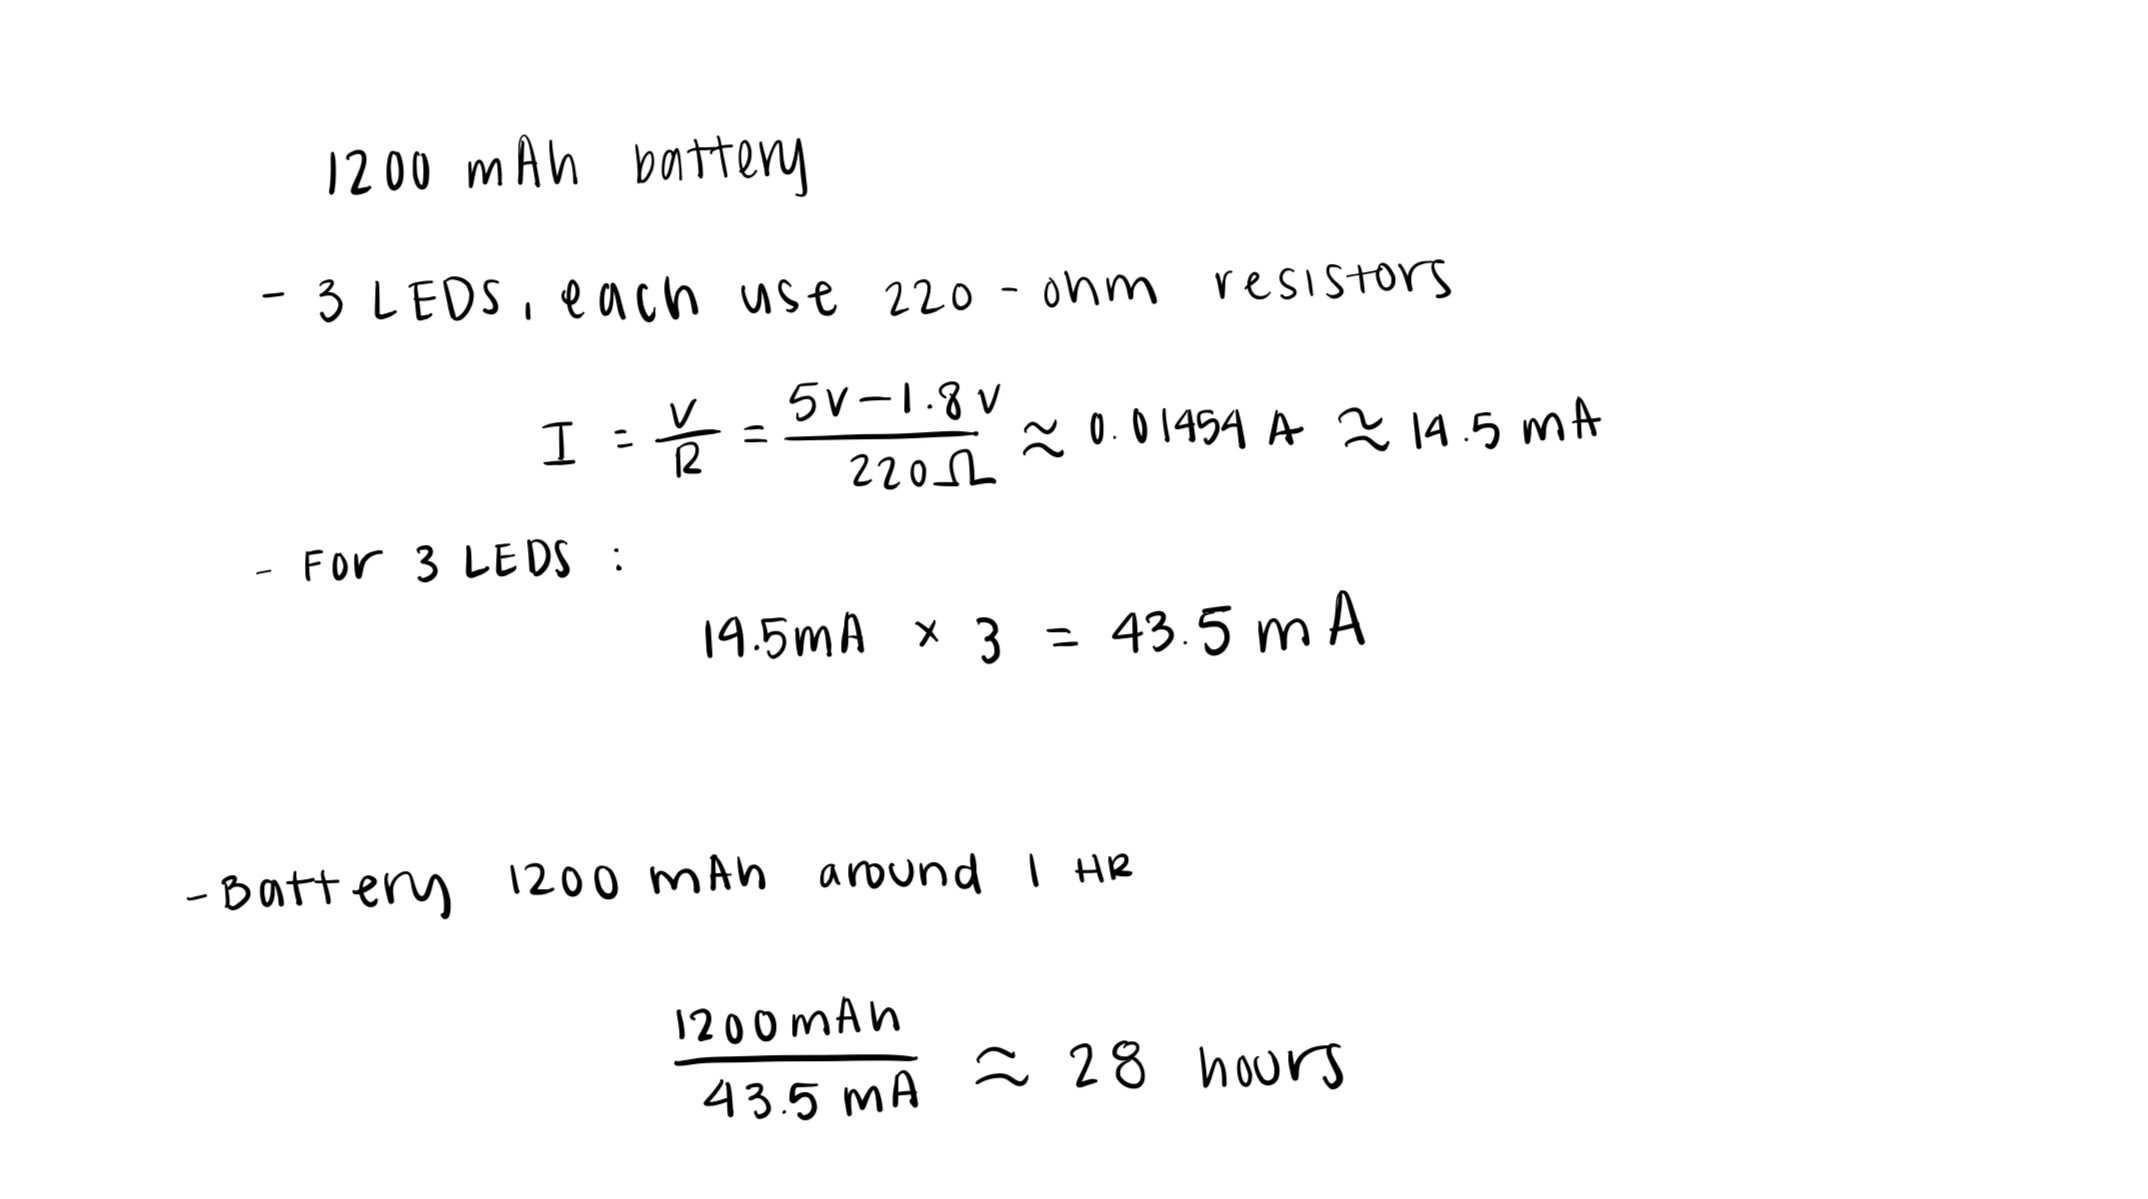 1200 mAh battery
- 3 LEDS, each use 220-ohm resistors
I = V/R = 5V-1.8V/220Ω ≈ 0.01454 A ≈ 14.5 mA
- For 3 LEDS :
14.5mA × 3 = 43.5 mA
- Battery 1200 mAh around 1 HR
1200mAh/43.5 mA ≈ 28 hours